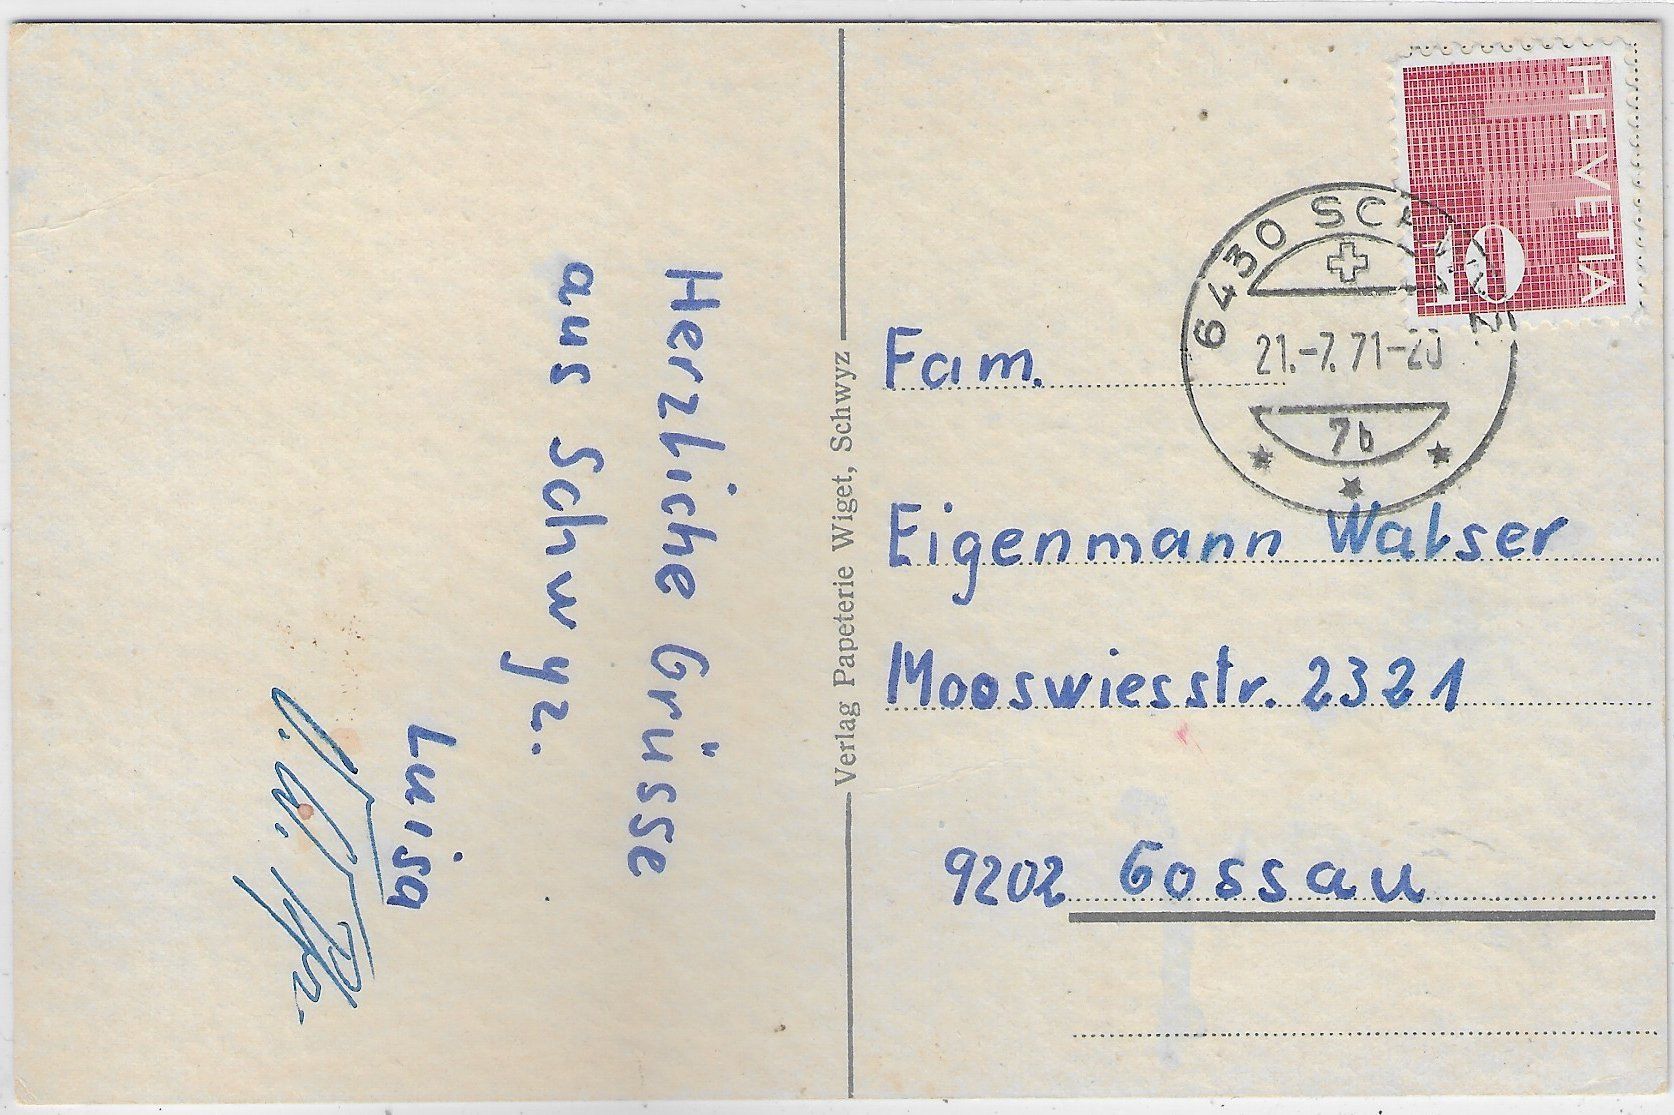 Herzliche Grüsse
aus Schwyz.
Luisa
Verlag Papeterie Wiget, Schwyz
HELVETIA
10
6430 SCHWYZ
21.-7.71-20
7b
Fam.
Eigenmann Walser
Mooswiesstr. 2321
9202 Gossau